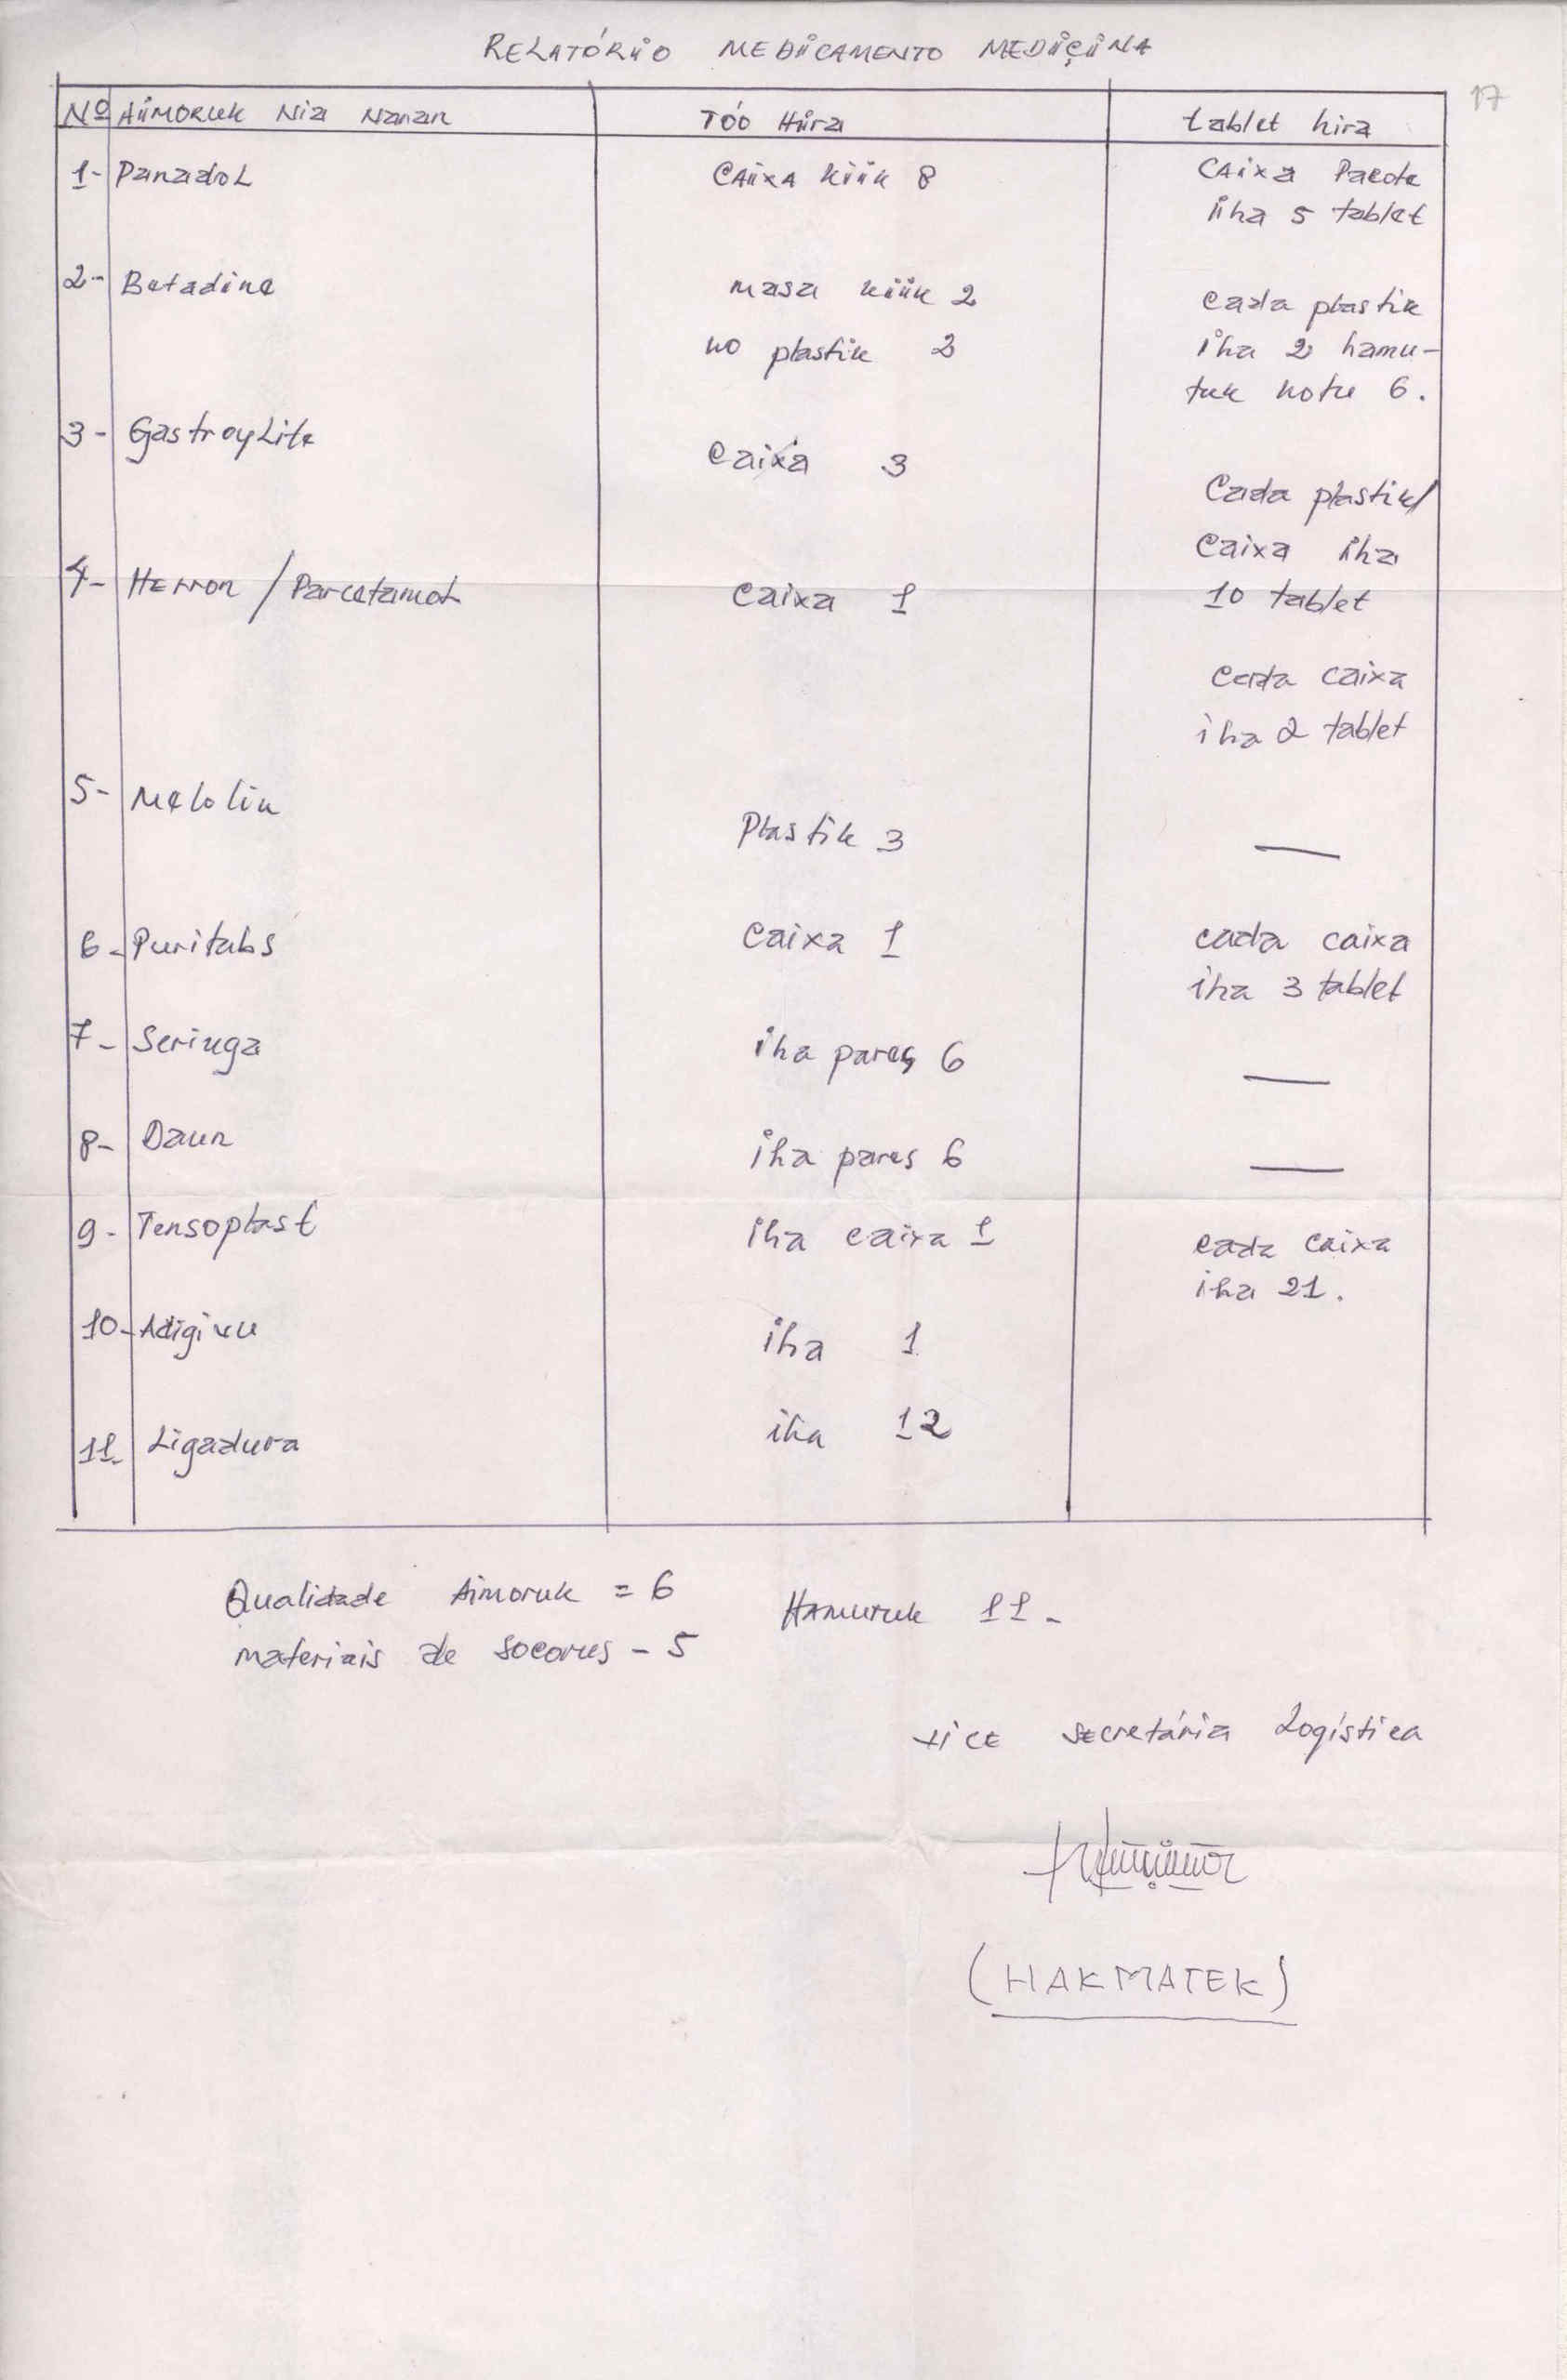 RELATÓRIO MEDICAMENTO MEDIÇINA
17
Nº AIMORUK Nia Naran Tóo Hira tablet hira
1- Panadol CAIXA kiik 8 CAixa Pacote
iha 5 tablet
2- Betadine masa kiik 2 cada plastik
no plastik 2 iha 2 hamu-
tuk hotu 6.
3- Gastroylite caixa 3
Cada plastik/
caixa iha
4- Herron / Parcetamol caixa 1 10 tablet
cada caixa
iha 2 tablet
5- Melolin
Plastik 3 —
6- Puritabs caixa 1 cada caixa
iha 3 tablet
7- Seringa iha pares 6 —
8- Daun iha pares 6 —
9- Tensoplast iha caixa 1 cada caixa
iha 21.
10- iha 1
11. Ligadura iha 12
Qualidade Aimoruk = 6 Hamutuk 11-
materiais de socorrus - 5
vice secretária Logística
(HAKMATEK)